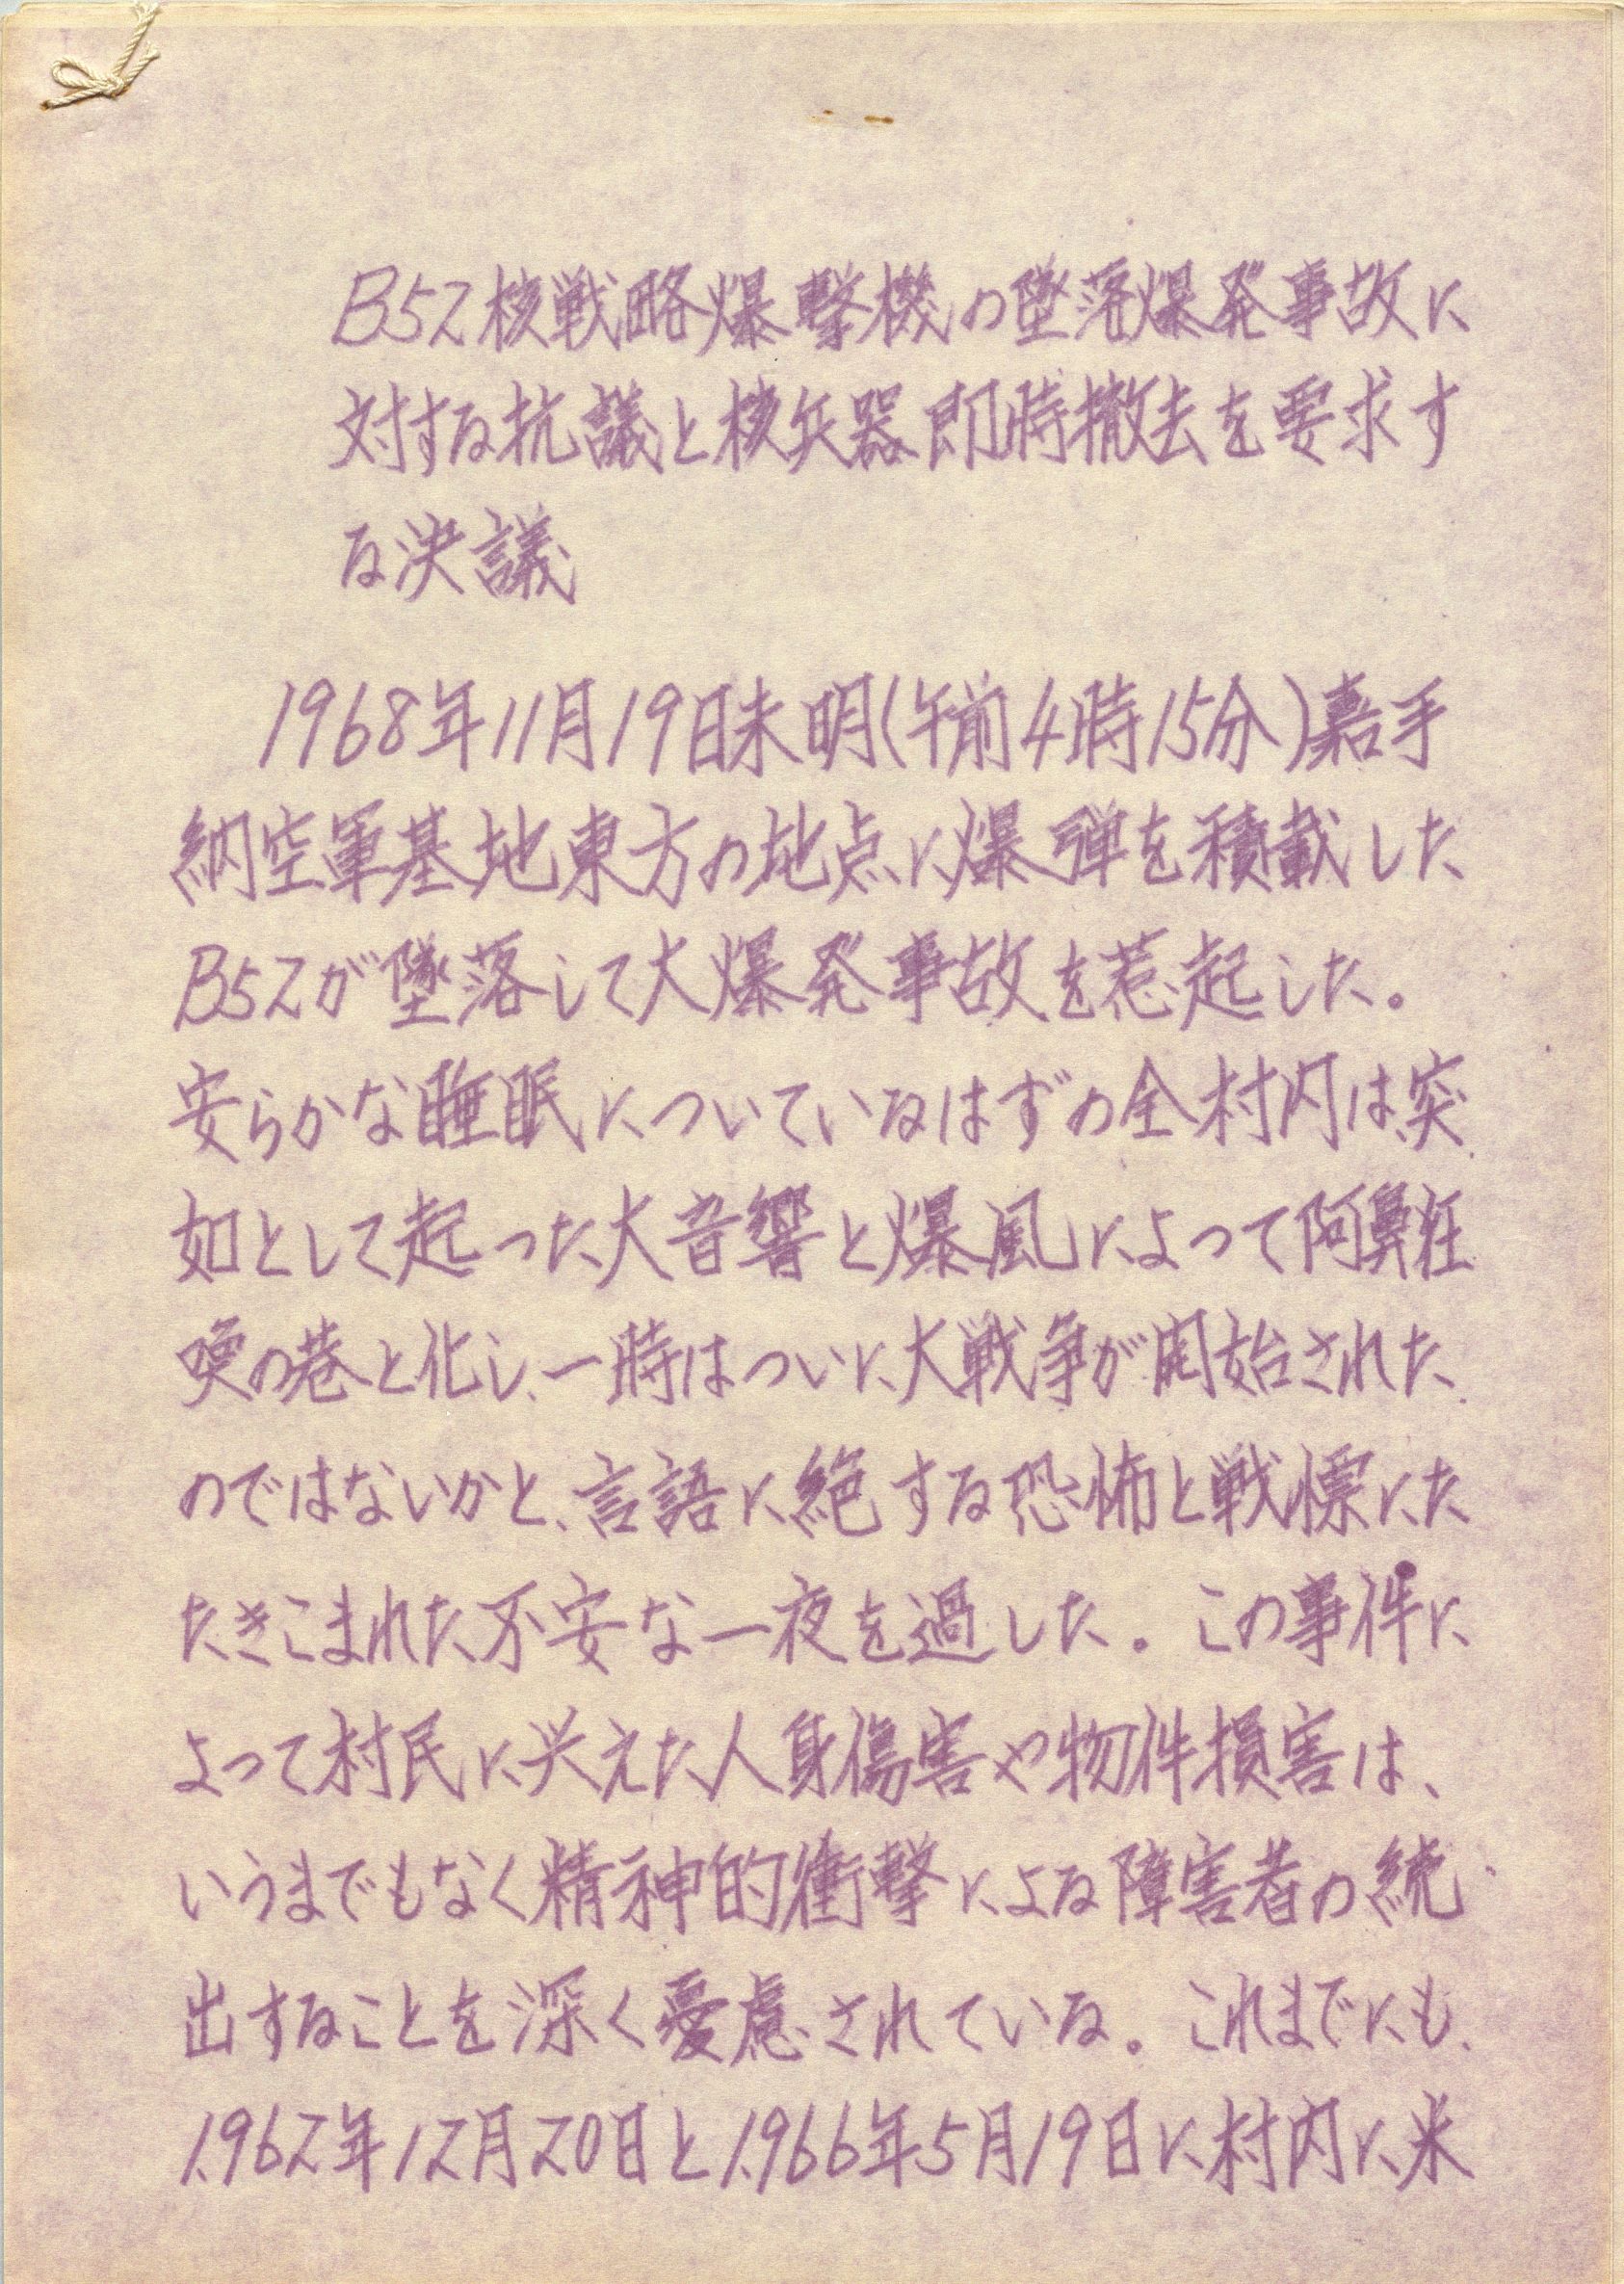 B52核戦略爆撃機の墜落爆発事故に
対する抗議と核兵器即時撤去を要求す
る決議
1968年11月19日未明(午前4時15分)嘉手
納空軍基地東方の地点に爆弾を積載した
B52が墜落して大爆発事故を惹起した。
安らかな睡眠についているはずの全村内は、突
如として起った大音響と爆風によって阿鼻狂
喚の巷と化し、一時はついに大戦争が開始された
のではないかと、言語に絶する恐怖と戦慄にた
たきこまれた不安な一夜を過した。この事件に
よって村民に与えた人身傷害や物件損害は、
いうまでもなく精神的衝撃による障害者の続
出することを深く憂慮されている。これまでにも、
1962年12月20日と1966年5月19日に村内に米